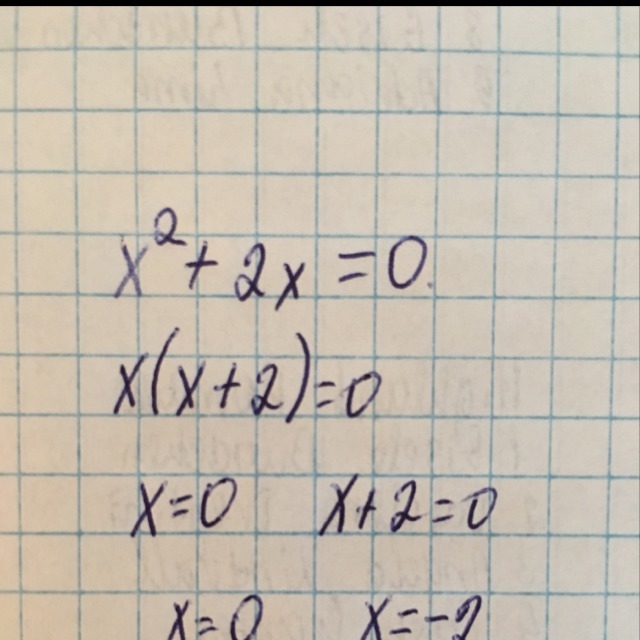 x² + 2x = 0.
x(x+2)=0
x=0 x+2=0
x=0 x=-2